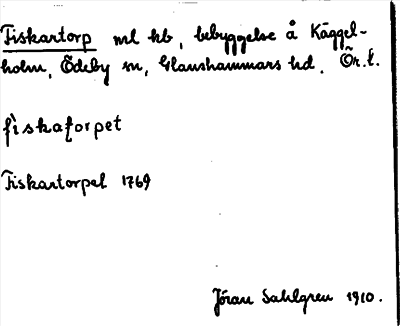 Fiskartorp ml hb, bebyggelse å Käggel-
holm, Ödeby sn, Glanshammars hd, Ör. l.
fiskaforpet
Fiskartorpet 1769
Jöran Sahlgren 1910.